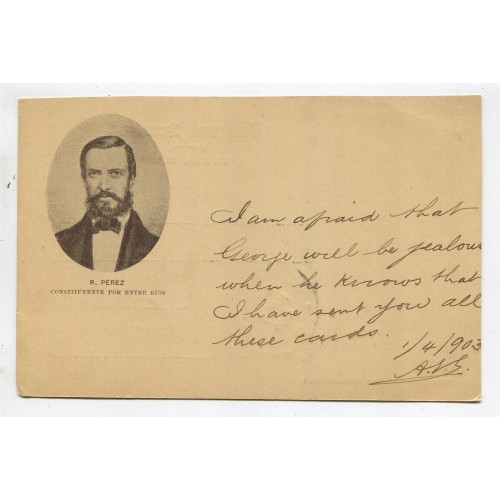 R. PÉREZ
CONSTITUYENTE POR ENTRE RÍOS
I am afraid that
George will be jealous
when he knows that
I have sent you all
these cards.
1/4/903